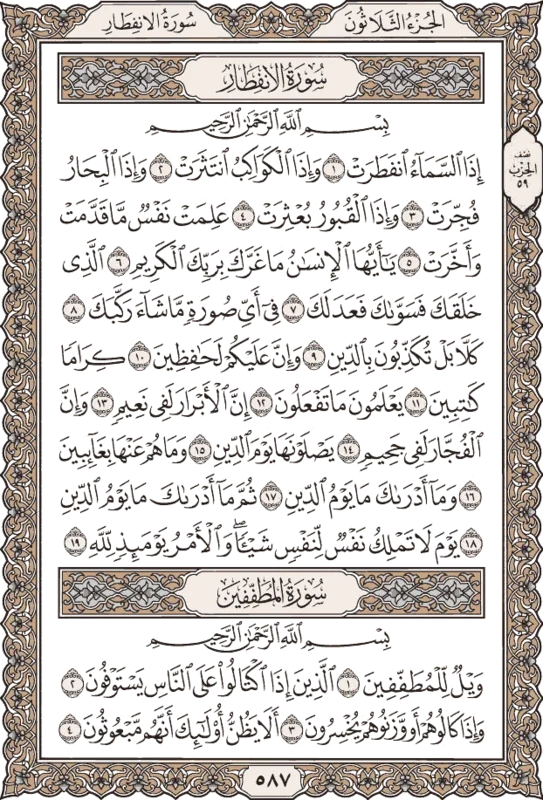 الجُزْءُ الثَّلَاثُونَ
سُورَةُ الانفِطَار
سُورَةُ الانفِطَار
بِسْمِ اللَّهِ الرَّحْمَٰنِ الرَّحِيمِ
إِذَا السَّمَاءُ انفَطَرَتْ ١ وَإِذَا الْكَوَاكِبُ انتَثَرَتْ ٢ وَإِذَا الْبِحَارُ
فُجِّرَتْ ٣ وَإِذَا الْقُبُورُ بُعْثِرَتْ ٤ عَلِمَتْ نَفْسٌ مَّا قَدَّمَتْ
وَأَخَّرَتْ ٥ يَٰأَيُّهَا الْإِنسَٰنُ مَا غَرَّكَ بِرَبِّكَ الْكَرِيمِ ٦ الَّذِي
خَلَقَكَ فَسَوَّىٰكَ فَعَدَلَكَ ٧ فِي أَيِّ صُورَةٍ مَّا شَاءَ رَكَّبَكَ ٨
كَلَّا بَلْ تُكَذِّبُونَ بِالدِّينِ ٩ وَإِنَّ عَلَيْكُمْ لَحَٰفِظِينَ ١٠ كِرَامًا
كَٰتِبِينَ ١١ يَعْلَمُونَ مَا تَفْعَلُونَ ١٢ إِنَّ الْأَبْرَارَ لَفِي نَعِيمٍ ١٣ وَإِنَّ
الْفُجَّارَ لَفِي جَحِيمٍ ١٤ يَصْلَوْنَهَا يَوْمَ الدِّينِ ١٥ وَمَا هُمْ عَنْهَا بِغَائِبِينَ
١٦ وَمَا أَدْرَىٰكَ مَا يَوْمُ الدِّينِ ١٧ ثُمَّ مَا أَدْرَىٰكَ مَا يَوْمُ الدِّينِ
١٨ يَوْمَ لَا تَمْلِكُ نَفْسٌ لِّنَفْسٍ شَيْئًا ۖ وَالْأَمْرُ يَوْمَئِذٍ لِّلَّهِ ١٩
سُورَةُ المُطَفِّفِينَ
بِسْمِ اللَّهِ الرَّحْمَٰنِ الرَّحِيمِ
وَيْلٌ لِّلْمُطَفِّفِينَ ١ الَّذِينَ إِذَا اكْتَالُوا عَلَى النَّاسِ يَسْتَوْفُونَ ٢
وَإِذَا كَالُوهُمْ أَو وَّزَنُوهُمْ يُخْسِرُونَ ٣ أَلَا يَظُنُّ أُولَٰئِكَ أَنَّهُم مَّبْعُوثُونَ ٤
نصف
الحزب
٥٩
٥٨٧